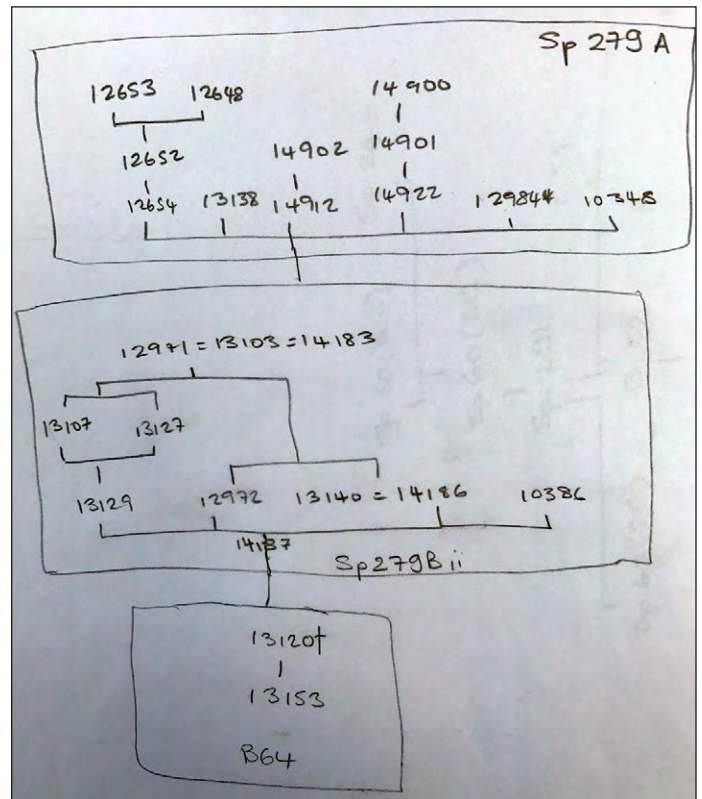 Sp 279 A
12653 12648 14900
12652 14902 14901
12654 13138 14912 14922 129844 10348
12971 = 13103 = 14183
13107 13127
13129 12972 13140 = 14186 10386
14187
Sp279B ii
13120†
13153
B64